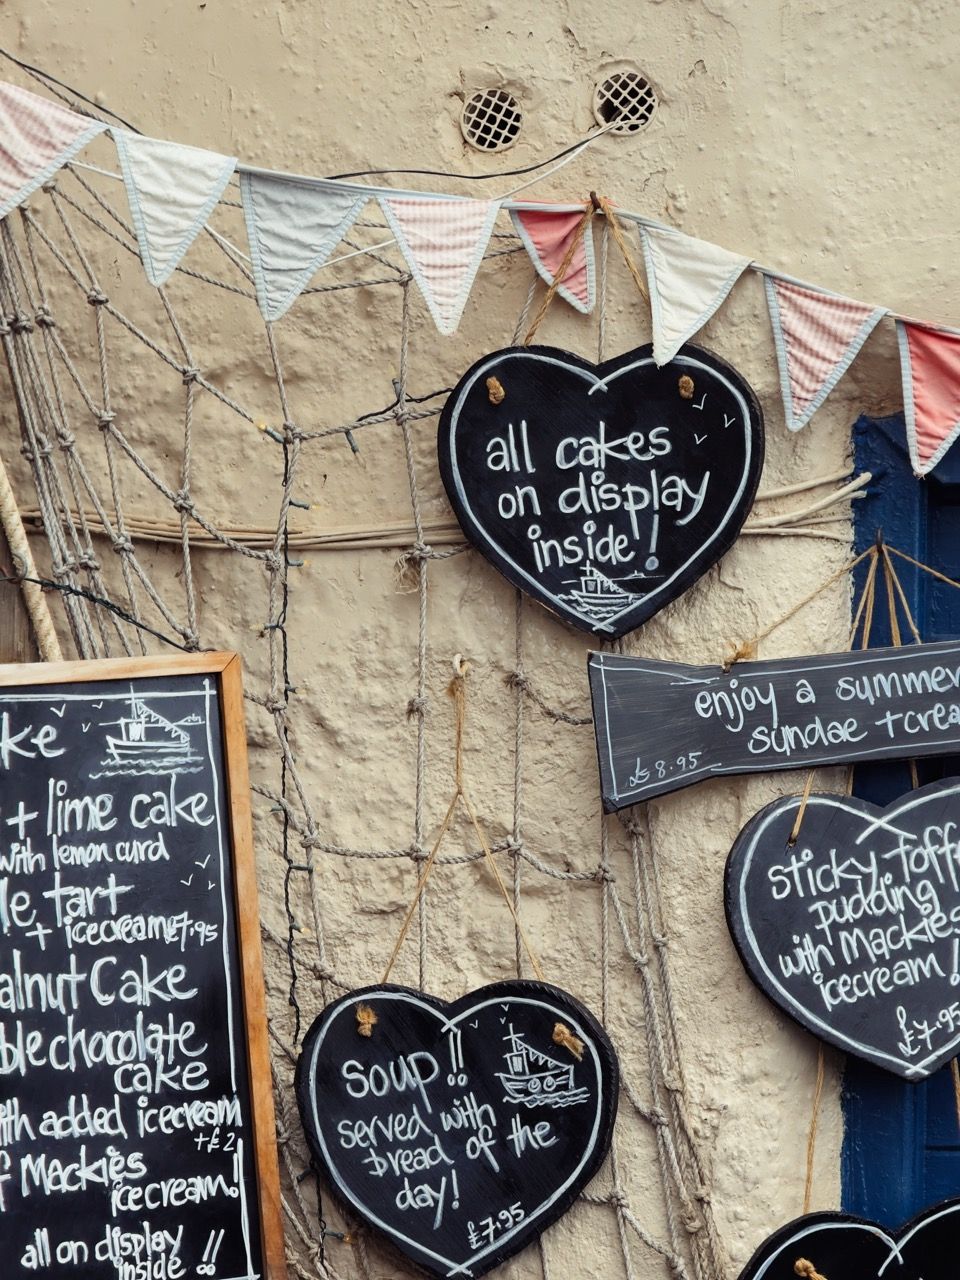 all cakes
on display
inside!
enjoy a summer
sundae + crea
£8.95
sticky toff
pudding
with Mackies
icecream!
£7.95
ke
+ lime cake
with lemon curd
le tart
+ icecream £7.95
alnut Cake
ble chocolate
cake
ith added icecream
+£2
f Mackies
icecream!
all on display
inside!!
soup!!
served with
bread of the
day!
£7.95